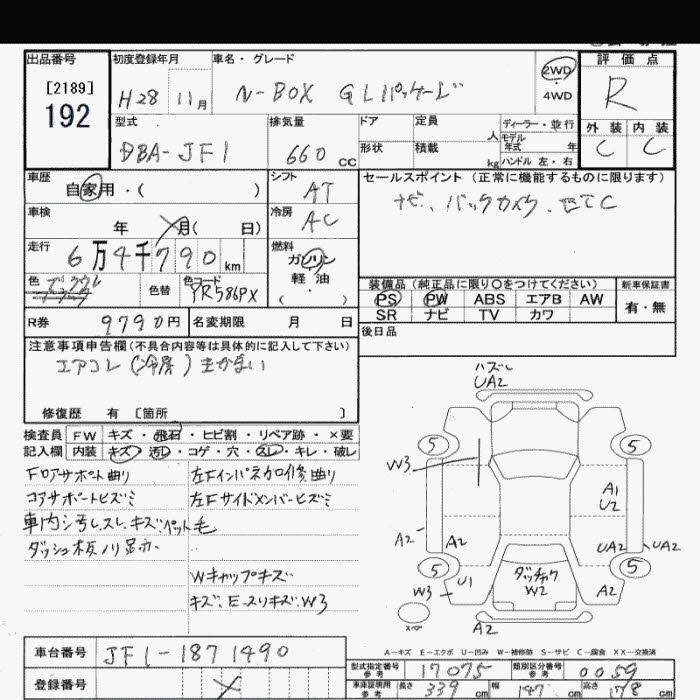 出品番号 初度登録年月 車名・グレード 2WD 評価点
[2189] H28 11月 N-BOX GLパッケージ ・4WD R
192
型式 排気量 ドア 定員 人 ディーラー・並行 外装 内装
DBA-JF1 660cc 形状 積載 kg モデル年式 年 C C
ハンドル 左・右
車歴 自家用・( ) シフト AT セールスポイント (正常に機能するものに限ります)
車検 年 月( 日) 冷房 AC ナビ、バックカメラ、ETC
走行 6万4千790km 燃料 ガソリン
軽油
・( )
色 色替 色コード YR586PX
装備品 (純正品に限り○をつけてください) 新車保証書
PS PW ABS エアB AW 有・無
SR ナビ TV カワ
R券 9790円 名変期限 月 日 後日品
注意事項申告欄(不具合内容等は具体的に記入して下さい)
エアコン (冷房)
修復歴 有 [箇所 ]
検査員 FW キズ・飛石・ヒビ割・リペア跡・×要
記入欄 内装 キズ・汚レ・コゲ・穴・スレ・キレ・破レ
Fロアサポート曲り 左Fインパネカロ修、曲り
コアサポートヒズミ 左Fサイドメンバーヒズミ
車内シ汚レ、スレ、キズ、ペット毛
ダッシュ板ノリ跡
Wキャップキズ
キズ、E-スリキズ、W3
ハズレ
UA2
5 5
W3
A1
U2
A2 A2 UA2 UA2
5 5
W3 U1 ダッチャク A2
W2
スペア
A2
A-キズ E-エクボ U-凹み W-補修跡 S-サビ C-腐食 XX-交換済
車台番号 JF1-1871490
登録番号
型式指定番号 参考 17075 類別区分番号 参考 0059
車庫証明用 参考 長さ 339cm 幅 147cm 高さ 178cm